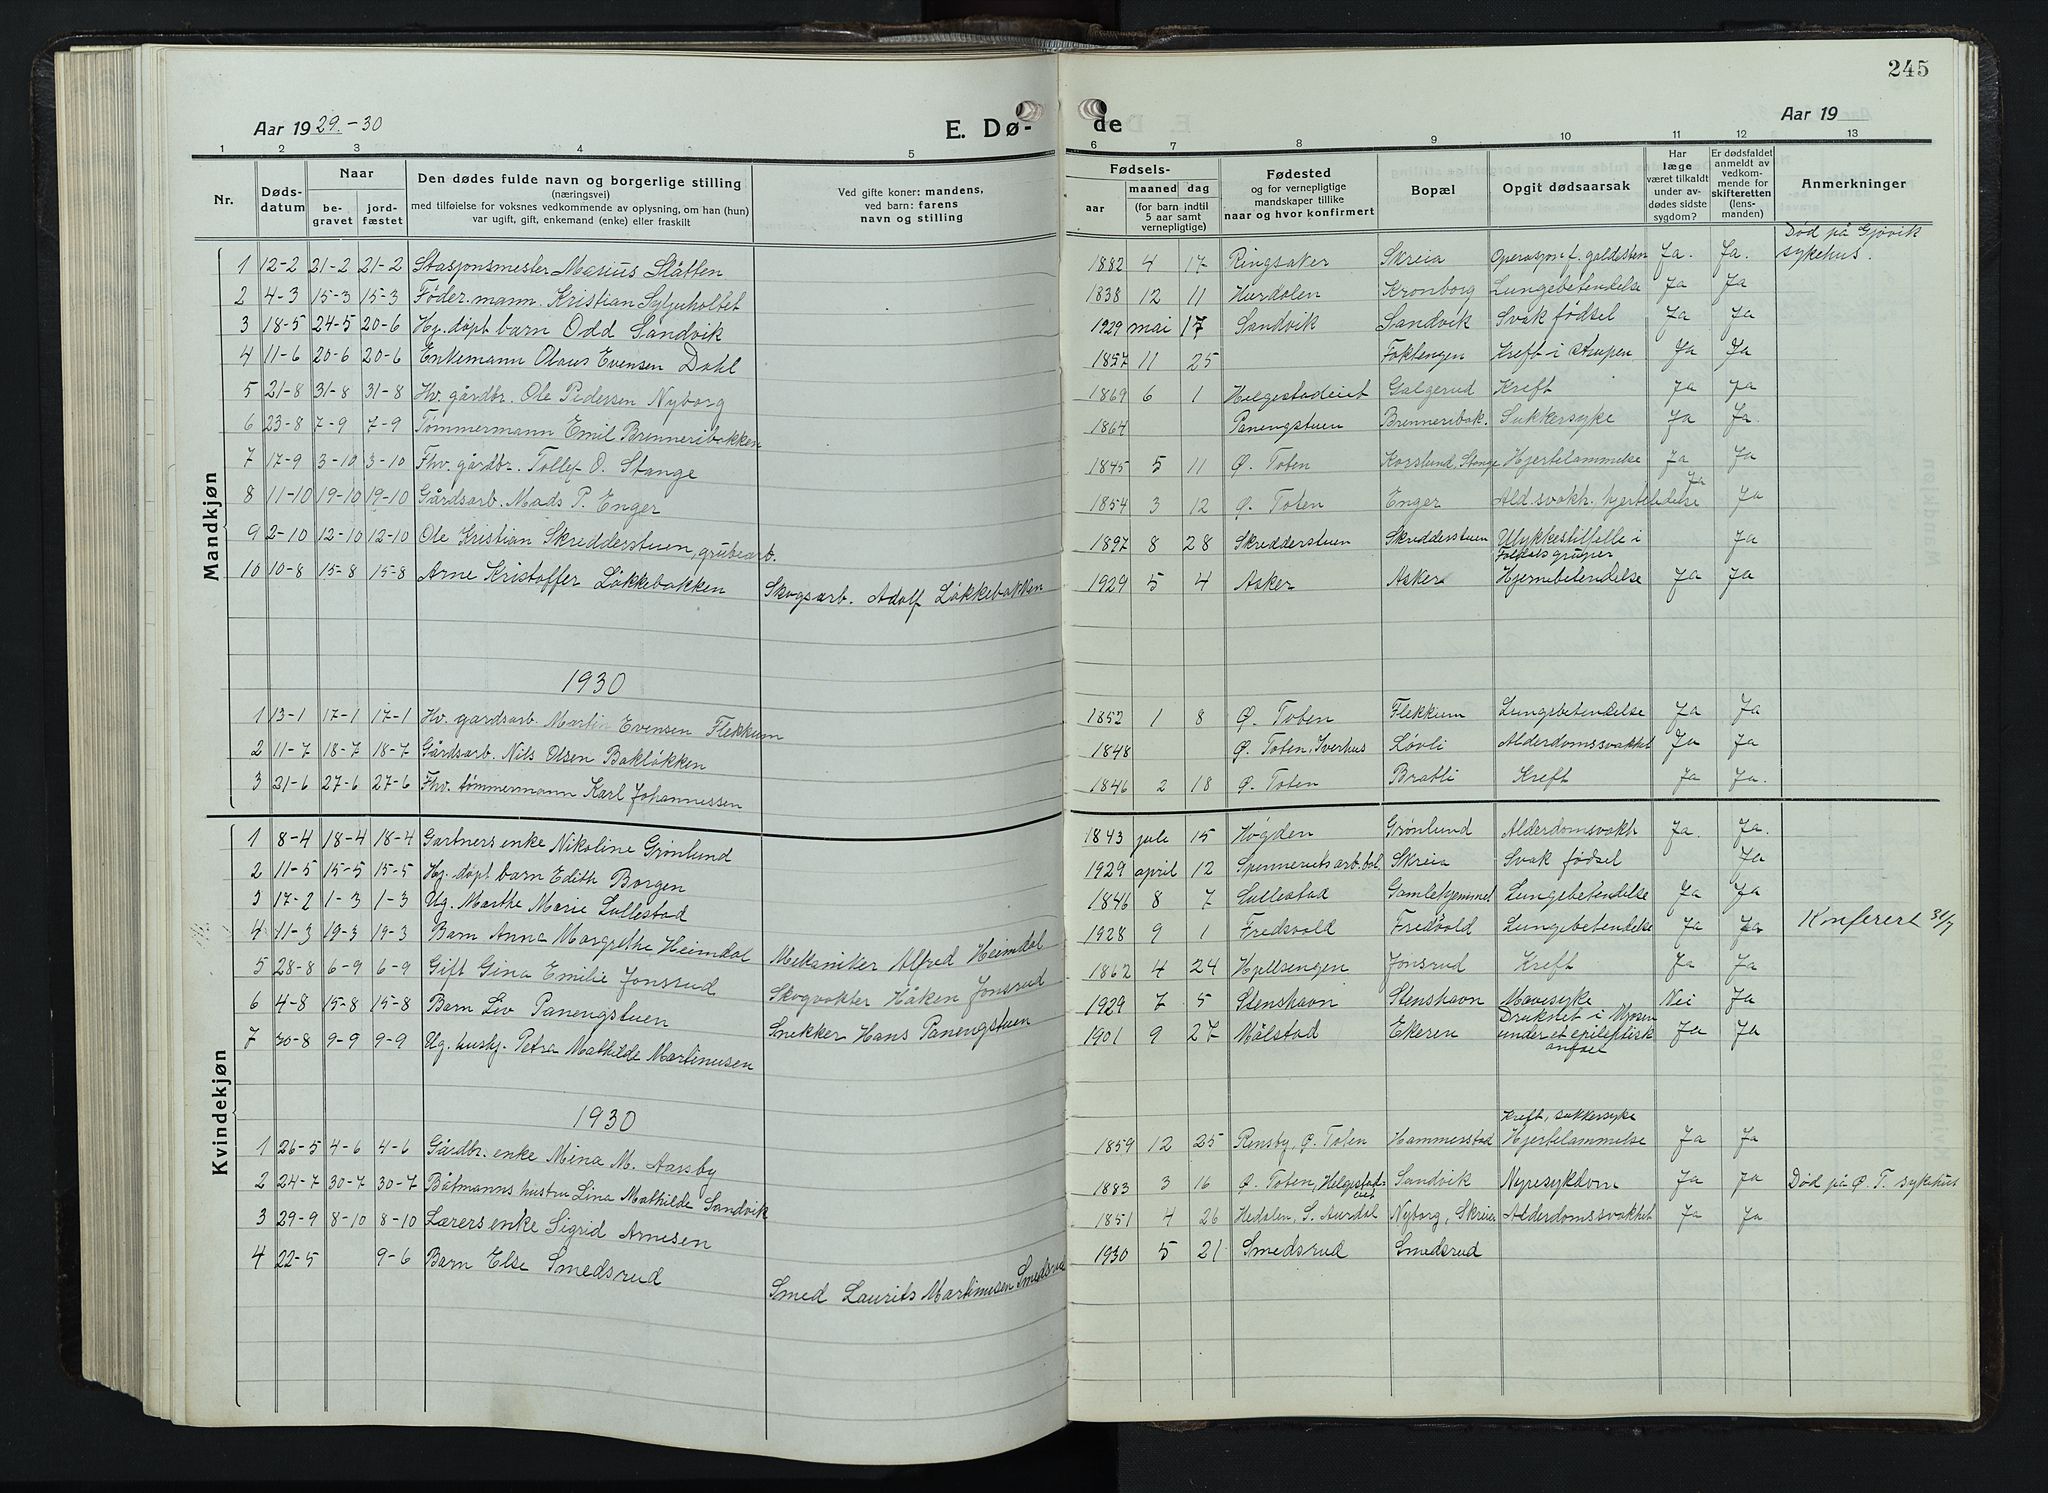 245
Aar 1929.-30
E. Dø-
de
Aar 19
1 2 3 4 5 6 7 8 9 10 11 12 13
Nr.
Døds-
datum
Naar
be-
gravet
jord-
fæstet
Den dødes fulde navn og borgerlige stilling
(næringsvei)
med tilføielse for voksnes vedkommende av oplysning, om han (hun)
var ugift, gift, enkemand (enke) eller fraskilt
Ved gifte koner: mandens,
ved barn: farens
navn og stilling
Fødsels-
aar
maaned dag
(for barn indtil
5 aar samt
vernepligtige)
Fødested
og for vernepligtige
mandskaper tillike
naar og hvor konfirmert
Bopæl
Opgit dødsaarsak
Har
læge
været tilkaldt
under av-
dødes sidste
sygdom?
Er dødsfaldet
anmeldt av
vedkom-
mende for
skifteretten
(lens-
manden)
Anmerkninger
Mandkjøn
1 12-2 21-2 21-2 Stasjonsmester Masius Slåtten 1882 4 17 Ringsaker Skreia Operasjon f. galdesten Ja. Ja. Død på Gjøvik sykehus.
2 4-3 15-3 15-3 Føder.mann. Kristian Syljuholtet 1838 12 11 Hurdalen Kronborg Lungebetendelse Ja Ja
3 18-5 24-5 20-6 Hj. døpt barn Odd Sandvik 1929 mai 17 Sandvik Sandvik Svak fødsel Ja Ja
4 11-6 20-6 20-6 Enkemann Olaus Evensen Dahl 1857 11 25 Foktengen Kreft i strupen Ja Ja
5 21-8 31-8 31-8 Hv. gårdbr. Ole Pedersen Nyborg 1869 6 1 Helgestadeiet Galgerud Kreft Ja Ja
6 23-8 7-9 7-9 Tømmermann Emil Brenneribakken 1864 Panengstuen Brenneribak. Sukkersyke Ja Ja.
7 17-9 3-10 3-10 Fhv. gårdbr. Tollef O. Stange 1845 5 11 Ø. Toten Korslund, Stange Hjertelammelse Ja Ja
8 11-10 19-10 19-10 Gårdsarb. Mads P. Enger 1854 3 12 Ø. Toten Enger Ald.svakh. hjertelidelse Ja Ja
9 2-10 12-10 12-10 Ole Kristian Skredderstuen, grubearb. 1897 8 28 Skredderstuen Skredderstuen Ulykkestilfelle i Foldals gruper Ja
10 10-8 15-8 15-8 Arne Kristoffer Løkkebakken Skogsarb. Adolf Løkkebakken 1929 5 4 Asker Asker Hjernebetendelse Ja Ja
1930
1 13-1 17-1 17-1 Hv. gardsarb. Martin Evensen Flekkum 1852 1 8 Ø. Toten Flekkum Lungebetendelse Ja Ja
2 11-7 18-7 18-7 Gårdsarb. Nils Olsen Bakløkken 1848 Ø. Toten, Iverhus Løvli Alderdomssvakhet Ja Ja
3 21-6 27-6 27-6 Fhv. tømmermann Karl Johannessen 1846 2 18 Ø. Toten Bratli Kreft Ja Ja.
Kvindekjøn
1 8-4 18-4 18-4 Gartners enke Nikoline Grønlund 1843 jule 15 Høgden Grønlund Alderdomsvakh Ja. Ja.
2 11-5 15-5 15-5 Hj. døpt barn Edith Borgen 1929 april 12 Spinneriets arb.bol. Skreia Svak fødsel Ja
3 17-2 1-3 1-3 Ug. Marthe Marie Lullestad 1846 8 7 Lullestad Gamlehjemmet Lungebetendelse Ja Ja
4 11-3 19-3 19-3 Barn Anna Margrethe Heimdal Mekaniker Alfred Heimdal 1928 9 1 Fredsvold Fredvold Lungebetendelse Ja Ja Konferert 31/7
5 28-8 6-9 6-9 Gift Gina Emilie Jonsrud Skogvokter Håken Jonsrud 1862 4 24 Hjellsengen Jonsrud Kreft Ja Ja
6 4-8 15-8 15-8 Barn Liv Panengstuen Snekker Hans Panengstuen 1929 7 5 Stenshavn Stenshavn Mavesyke Nei Ja
7 30-8 9-9 9-9 Ug. hushj. Petra Mathilde Martinusen 1901 9 27 Målstad Ekeren Druknet i Mjøsen under et epileptisk anfall Ja Ja
1930
1 26-5 4-6 4-6 Gårdbr. enke Mina M. Aarsby 1859 12 25 Rensby, Ø. Toten Hammerstad Kreft, sukkersyke Hjertelammelse Ja Ja
2 24-7 30-7 30-7 Båtmanns hustru Lina Mathilde Sandvik 1883 3 16 Ø. Toten, Helgestad-eiet Sandvik Nyresykdom Ja Ja Død på Ø. T. sykehus
3 29-9 8-10 8-10 Lærers enke Sigrid Arnesen 1851 4 26 Hedalen, S. Aurdal Nyborg, Skreia Alderdomssvakhet Ja Ja
4 22-5 9-6 Barn Else Smedsrud Smed Laurits Martinusen Smedsrud 1930 5 21 Smedsrud Smedsrud